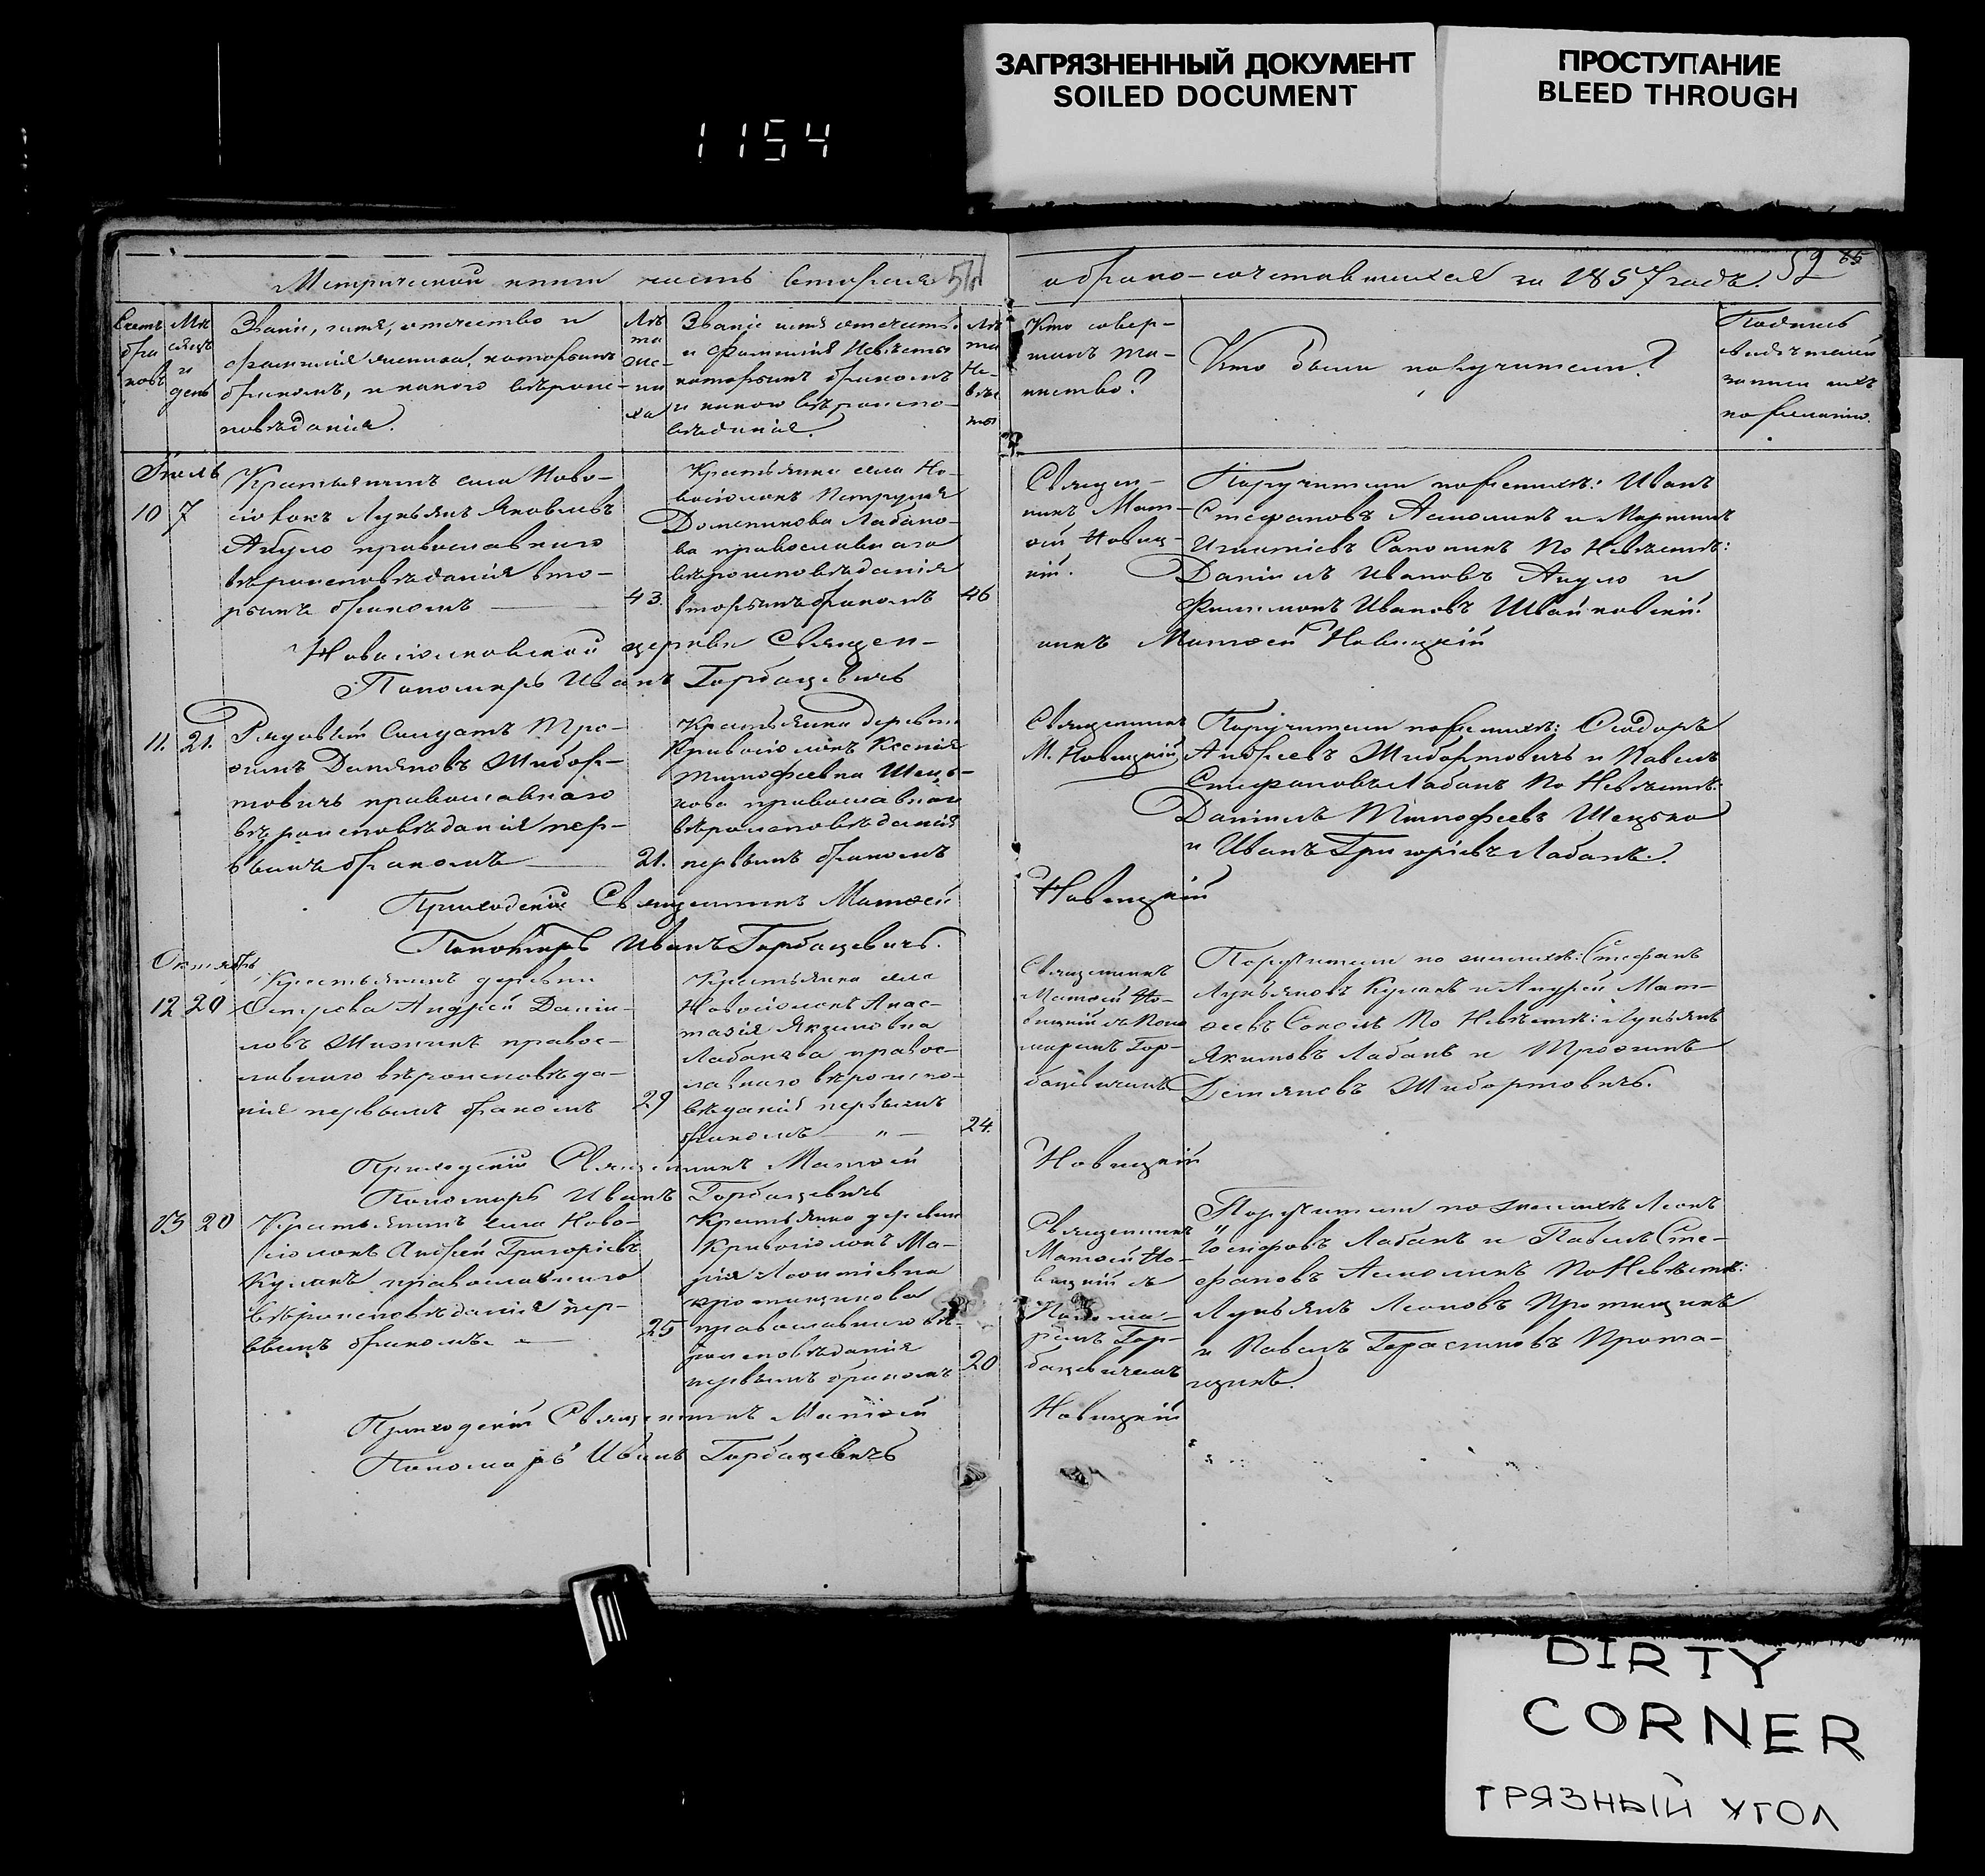 ЗАГРЯЗНЕННЫЙ ДОКУМЕНТ
SOILED DOCUMENT
ПРОСТУПАНИЕ
BLEED THROUGH
1154
Метрической книги часть вторая
о брако-сочетавшихся за 1857 годъ. 52
Счетъ
бра
ковъ
Мѣ
сяцъ
и
день
Званіе, имя, отечество и
фамилія жениха, которымъ
бракомъ, и какого вѣроис-
повѣданія.
Лѣ
та
же-
ни
ха
Званіе имя отечеств.
и фамилія Невѣсты
которымъ бракомъ
и какого вѣроиспо-
вѣданія.
Лѣ
та
Не-
вѣс
ты
Кто совер-
шилъ та-
инство?
Кто были поручители?
Подпись
свидѣтелей
записи ихъ
по желанію.
Іюль
10 7
Крестьянинъ села Ново-
сіолокъ Лукьянъ Яковлевъ
православнаго
вѣроисповѣданія вто-
рымъ бракомъ
43.
Крестьянка села Но-
восіолокъ
Доминикова Лабано-
ва православнаго
вѣроисповѣданія
вторымъ бракомъ
46
Священ-
никъ Мат-
ѳей Новиц-
кій.
Поручители по женихѣ: Иванъ
Стефановъ и Мартинъ
Игнатіевъ По Невѣстѣ:
Даніилъ Ивановъ и
Филимонъ Ивановъ Швайковскій.
Новосіолковской церкви Священ-
никъ Матѳей Новицкій
Пономарь Иванъ Горбацевичъ
11. 21.
Рядовый Солдатъ Тро-
ѳимъ Демяновъ Жибор-
товичъ православнаго
вѣроисповѣданія пер-
вымъ бракомъ
21.
Крестьянка деревни
Кривосіолокъ Ксенія
Тимофеевна Шець-
кова православнаго
вѣроисповѣданія
первымъ бракомъ
Священникъ
М. Новицкій
Поручители по женихѣ: Сидоръ
Андреевъ Жибортовичъ и Павелъ
Стефановъ Лабанъ По Невѣстѣ:
Даніилъ Тимофеевъ Шецько
и Иванъ Григоріевъ Лабанъ.
Приходскій Священникъ Матѳей
Новицкій
Пономарь Иванъ Горбацевичъ.
Октябрь
12 20
Крестьянинъ деревни
Андрей Даніи-
ловъ правос-
лавнаго вѣроисповѣда-
нія первымъ бракомъ
29
Крестьянка села
Новосіолокъ Анас-
тазія Якимовна
Лабанова правос-
лавнаго вѣроиспо-
вѣданія первымъ
бракомъ — „ —
24.
Священникъ
Матѳей Но-
вицкій съ Поно
маремъ Гор-
бацевичемъ
Поручители по женихѣ: Стефанъ
Лукьяновъ Кулакъ и Андрей Мат-
ѳеевъ Соколъ По Невѣстѣ: Лукьянъ
Якимовъ Лабанъ и Троѳимъ
Демяновъ Жибортовичъ.
Приходскій Священникъ Матѳей
Новицкій
Пономарь Иванъ Горбацевичъ
13 20
Крестьянинъ села Ново-
сіолокъ Андрей Григоріевъ
Кулакъ православнаго
вѣроисповѣданія пер-
вымъ бракомъ
25
Крестьянка деревни
Кривосіолокъ Ма-
рія Леонтіевна
Протащикова
православнаго вѣ-
роисповѣданія
первымъ бракомъ
20
Священникъ
Матѳей Но-
вицкій съ
Понома-
ремъ Гор-
бацевичемъ
Поручители по женихѣ Леонъ
Іосифовъ Лабанъ и Павелъ Сте-
фановъ По Невѣстѣ:
Лукьянъ Леоновъ Протащикъ
и Павелъ Герасимовъ Прота-
щикъ.
Приходскій Священникъ Матѳей
Новицкій
Пономарь Иванъ Горбацевичъ
DIRTY
CORNER
ГРЯЗНЫЙ УГОЛ